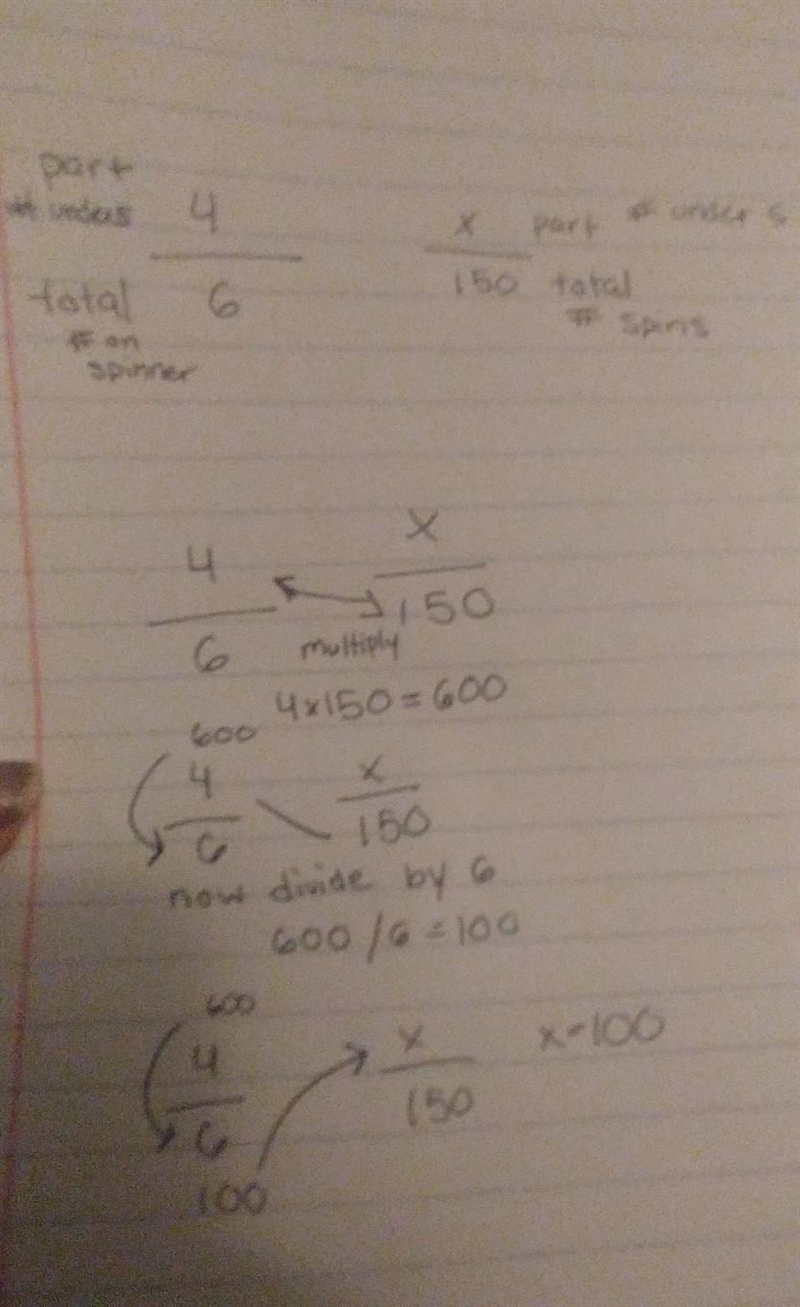 part
# under 5 4
total 6
# on
spinner
x part # under 5
150 total
# spins
4 x
6 150
multiply
4x150=600
600
4 x
6 150
now divide by 6
600/6=100
600
4 x x=100
6 150
100